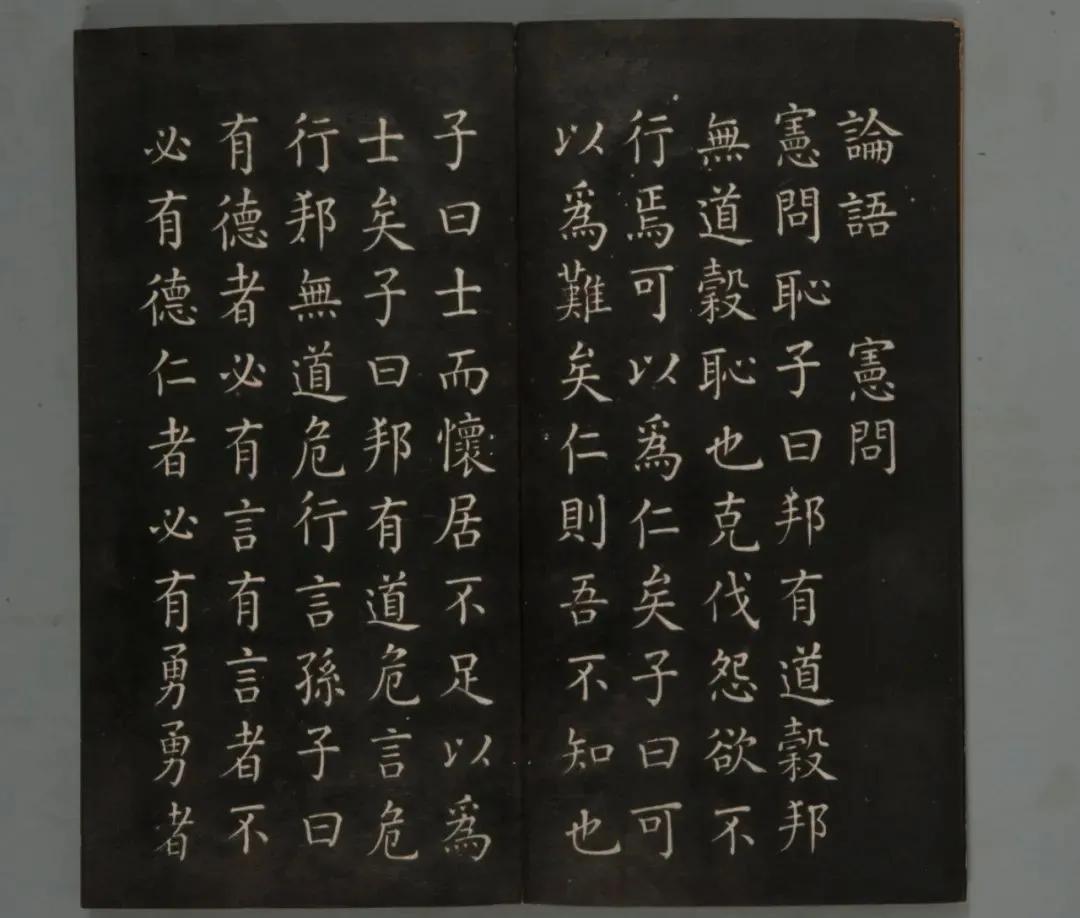 論語 憲問
憲問恥子曰邦有道穀邦
無道穀恥也克伐怨欲不
行焉可以為仁矣子曰可
以為難矣仁則吾不知也
子曰士而懷居不足以為
士矣子曰邦有道危言危
行邦無道危行言孫子曰
有德者必有言有言者不
必有德仁者必有勇勇者